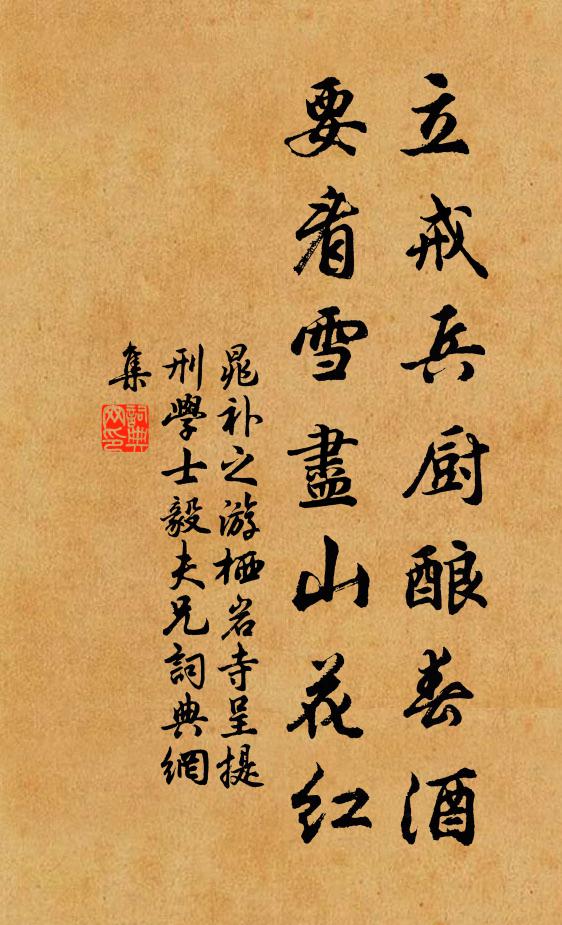 立戒兵厨酿春酒
要看雪盡山花红
晁补之游栖岩寺呈提
刑學士毅夫兄詞典網
集
詞典网印